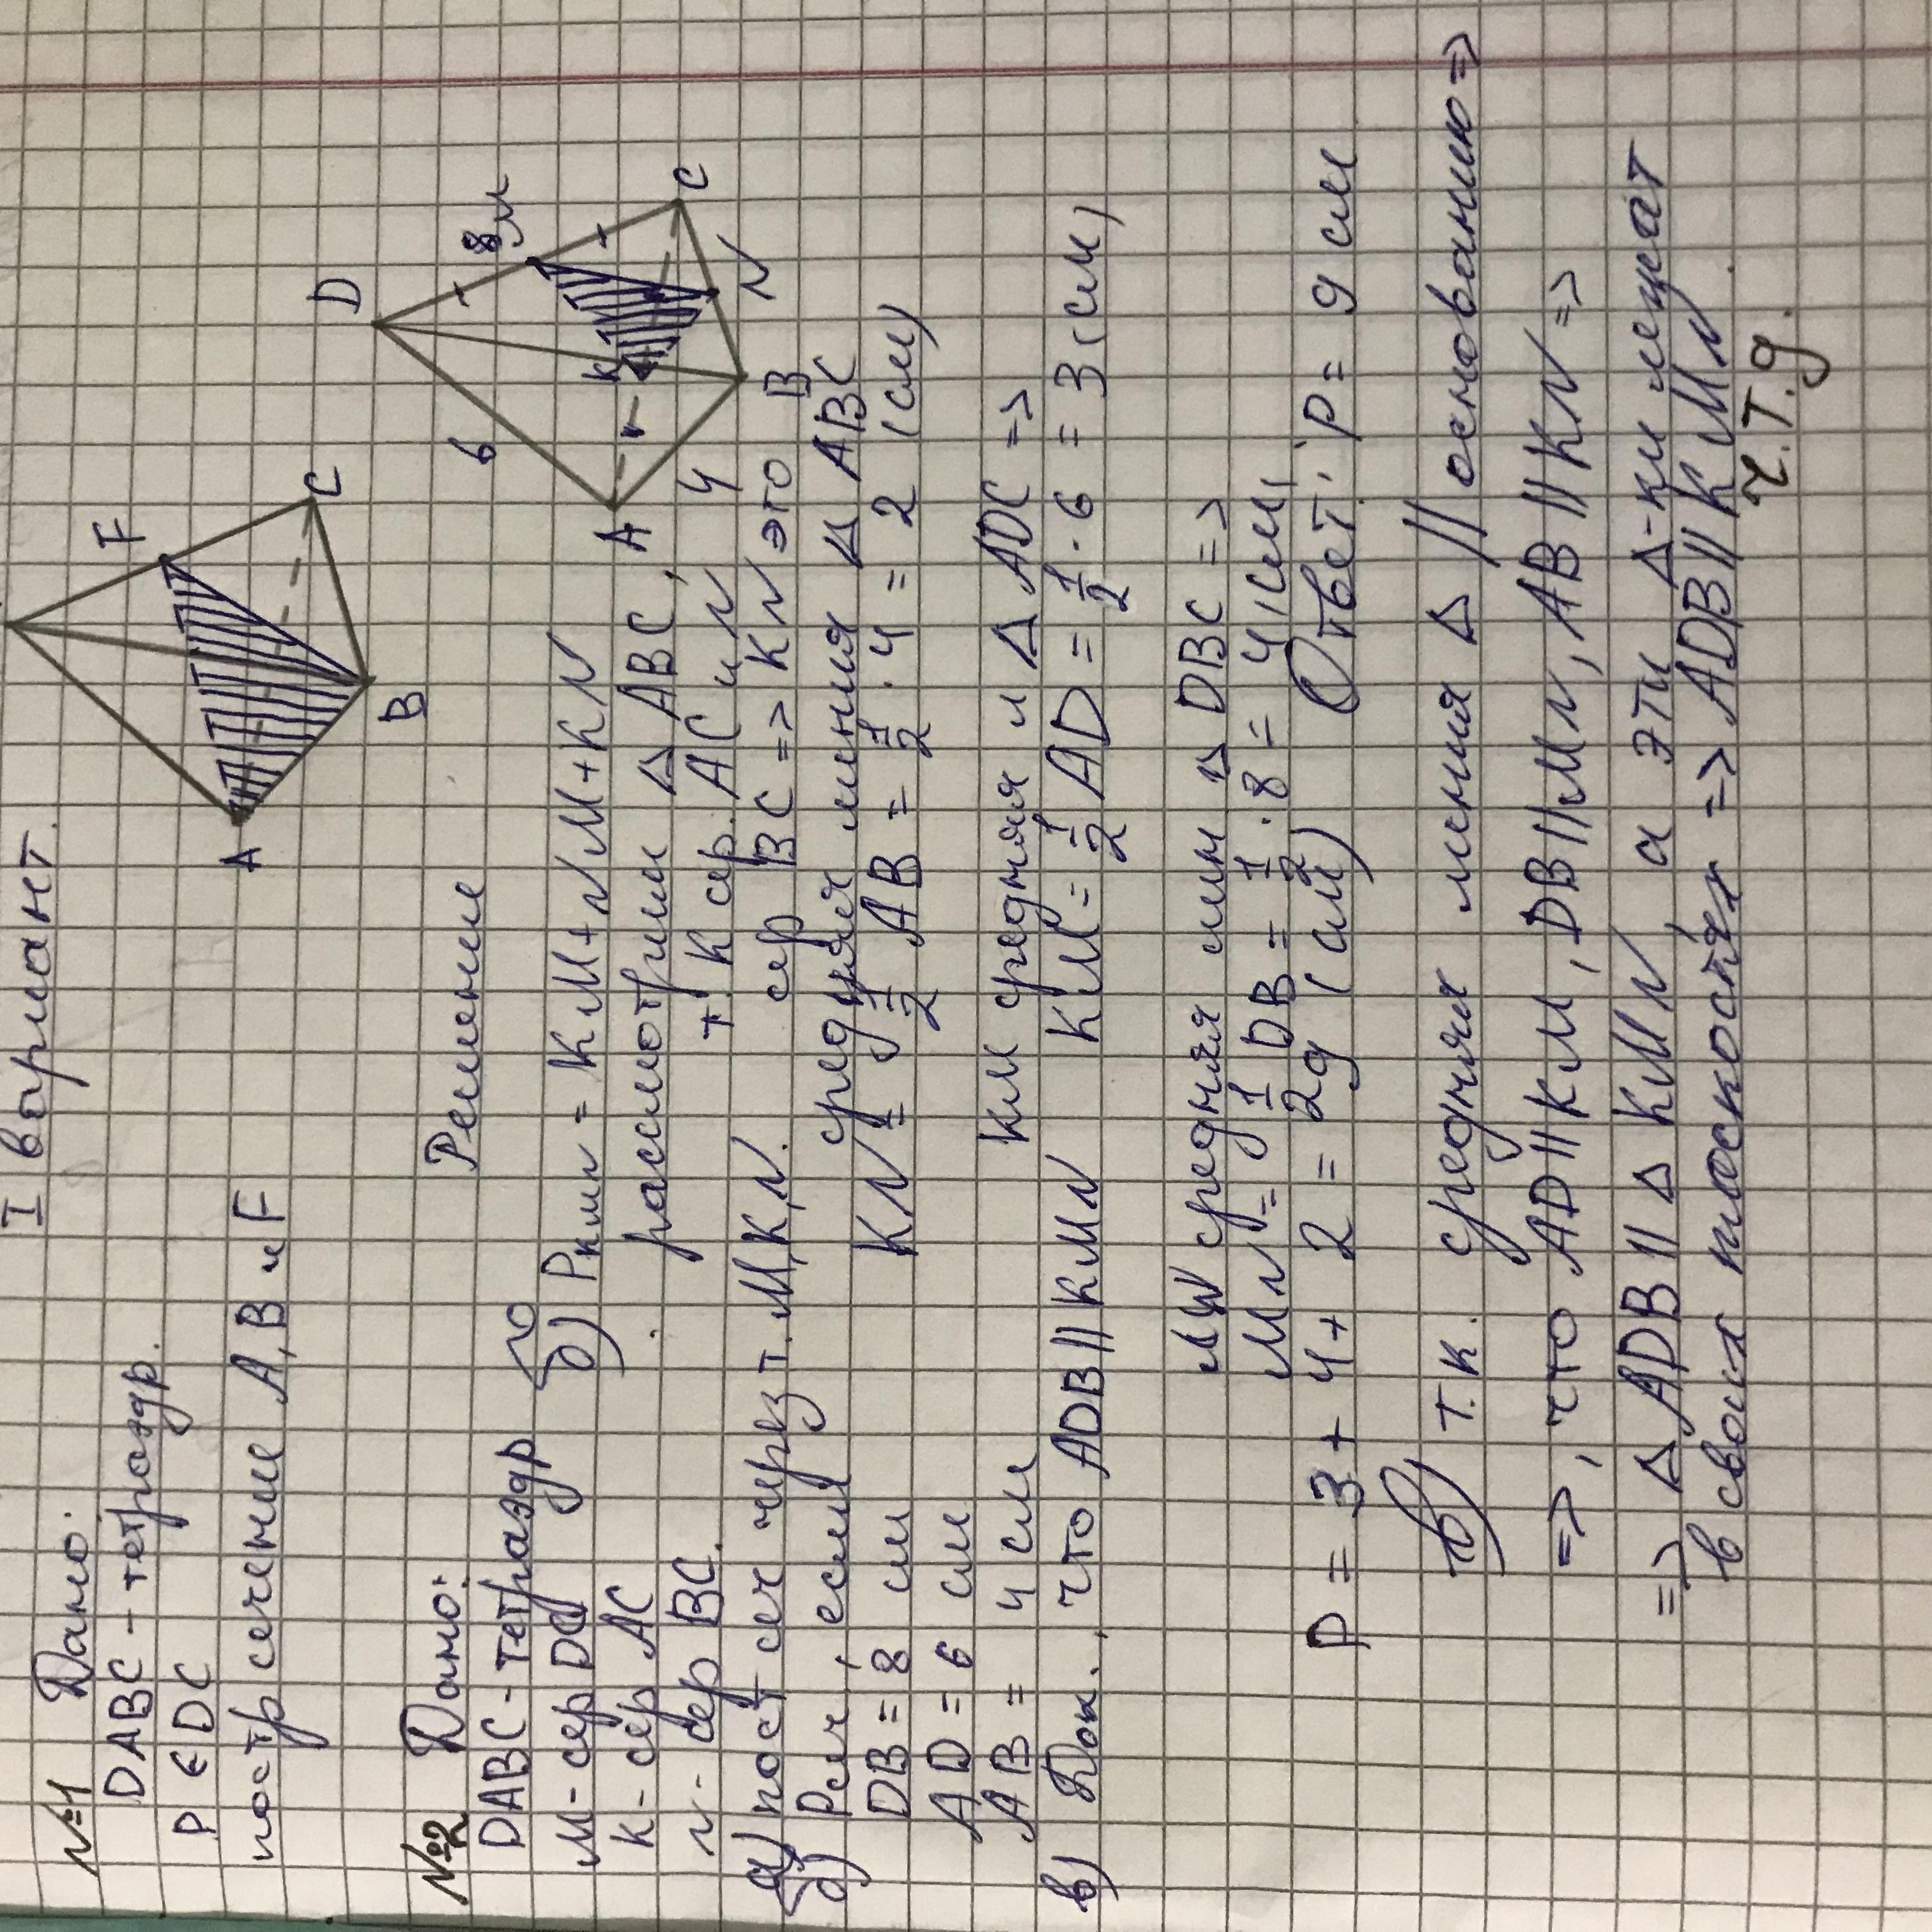 I вариант.
№1 Дано:
DABC - тетраэдр.
P ∈ DC
постр сечение A, B и F
F
A
B
C
№2 Дано:
DABC - тетраэдр
M - сер DC
K - сер AC
N - сер BC.
а) пост сеч через т. M, K, N.
б) Pсеч, если
DB = 8 см
AD = 6 см
AB = 4 см
в) Док., что ADB || KMN
D
8
M
6
K
C
A
N
4
B
Решение
б) Pкмн = KM + NM + KN
рассмотрим Δ ABC,
т. K сер. AC и N
сер BC => KN это
средняя линия Δ ABC
KN = 1/2 AB = 1/2 · 4 = 2 (см)
KM средняя л Δ ADC =>
KM = 1/2 AD = 1/2 · 6 = 3 (см)
MN средняя лин Δ DBC =>
MN = 1/2 DB = 1/2 · 8 = 4 (см)
P = 3 + 4 + 2 = 9 (см)
Ответ: P = 9 см
в) т.к. средняя линия Δ || основанию =>
=>, что AD || KM, DB || MN, AB || KN =>
=> Δ ADB || Δ KMN а эти Δ-ки лежат
в своих плоскостях => ADB || KMN
ч.т.д.